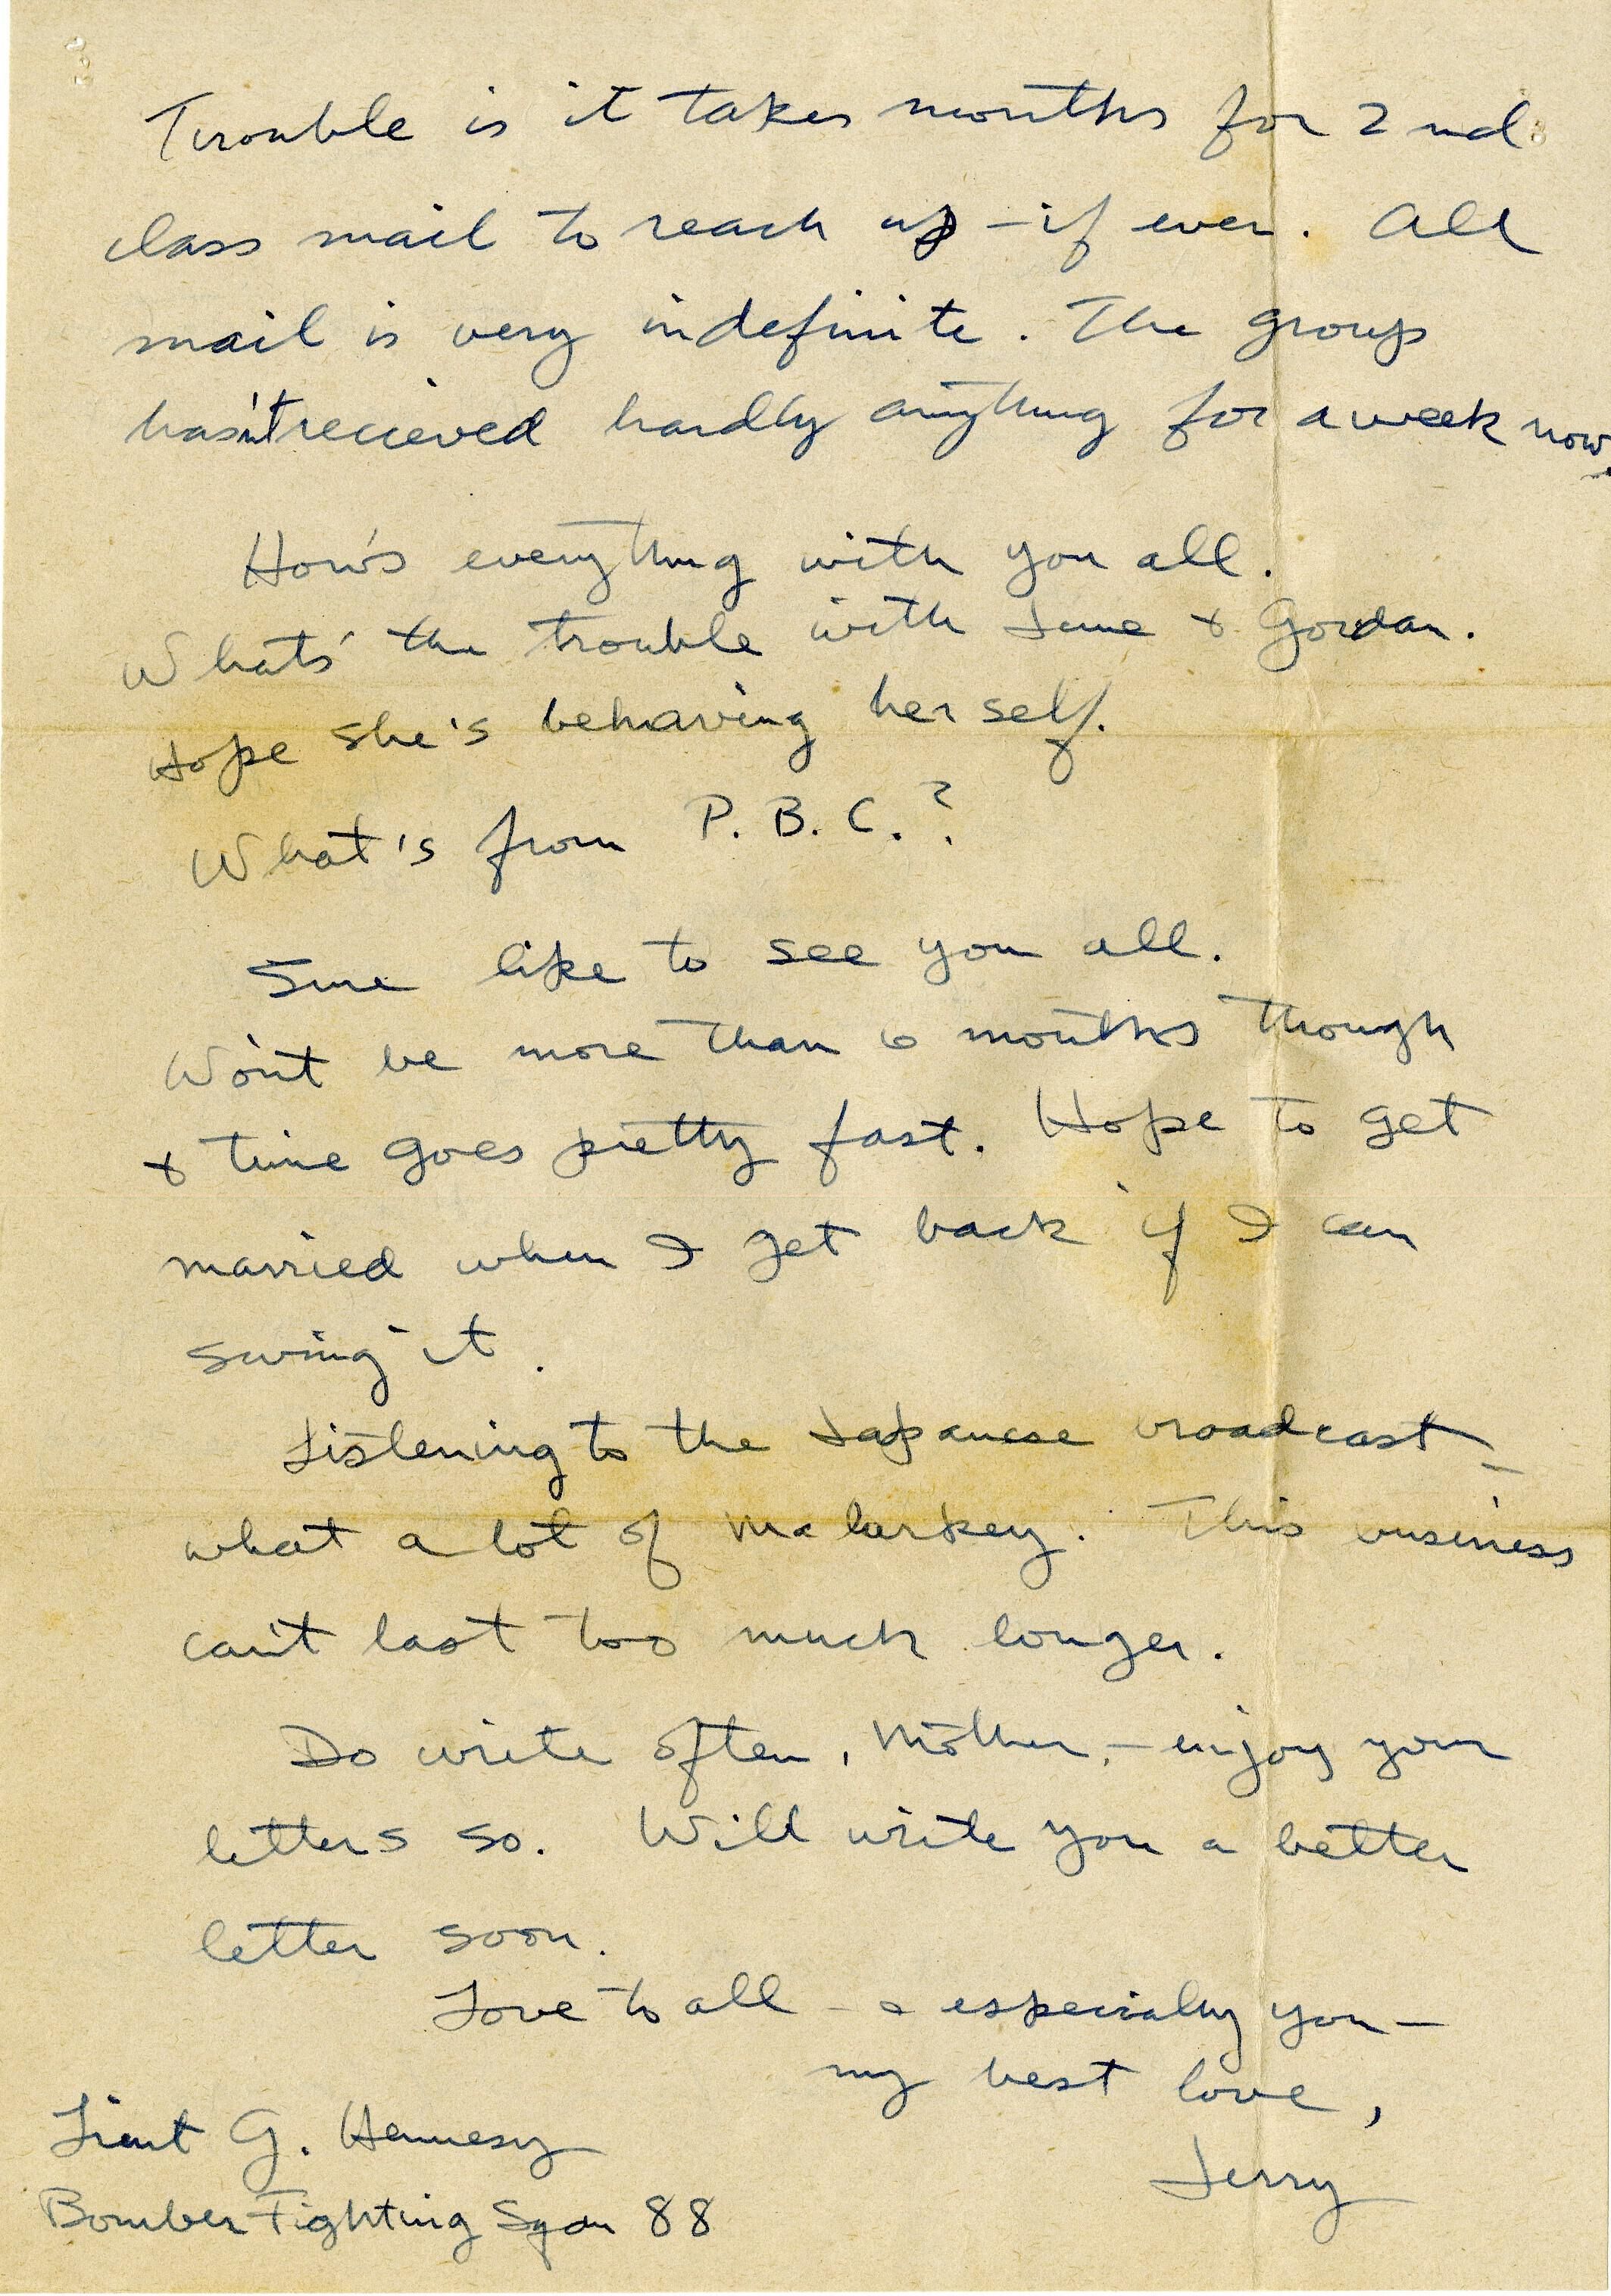 Trouble is it takes months for 2nd
class mail to reach us – if ever. All
mail is very indefinite. The group
hasn't recieved hardly anything for a week now.
How's everything with you all.
What's the trouble with June & Gordan.
Hope she's behaving herself.
What's from P.B.C.?
Sure like to see you all.
Won't be more than 6 months though
& time goes pretty fast. Hope to get
married when I get back if I can
swing it.
Listening to the Japanese broadcast –
what a lot of malarkey. This business
can't last too much longer.
Do write often, Mother, – enjoy your
letters so. Will write you a better
letter soon.
Love to all – & especially you –
my best love,
Jerry
Lieut G. Hennesy
Bomber Fighting Sqdn 88